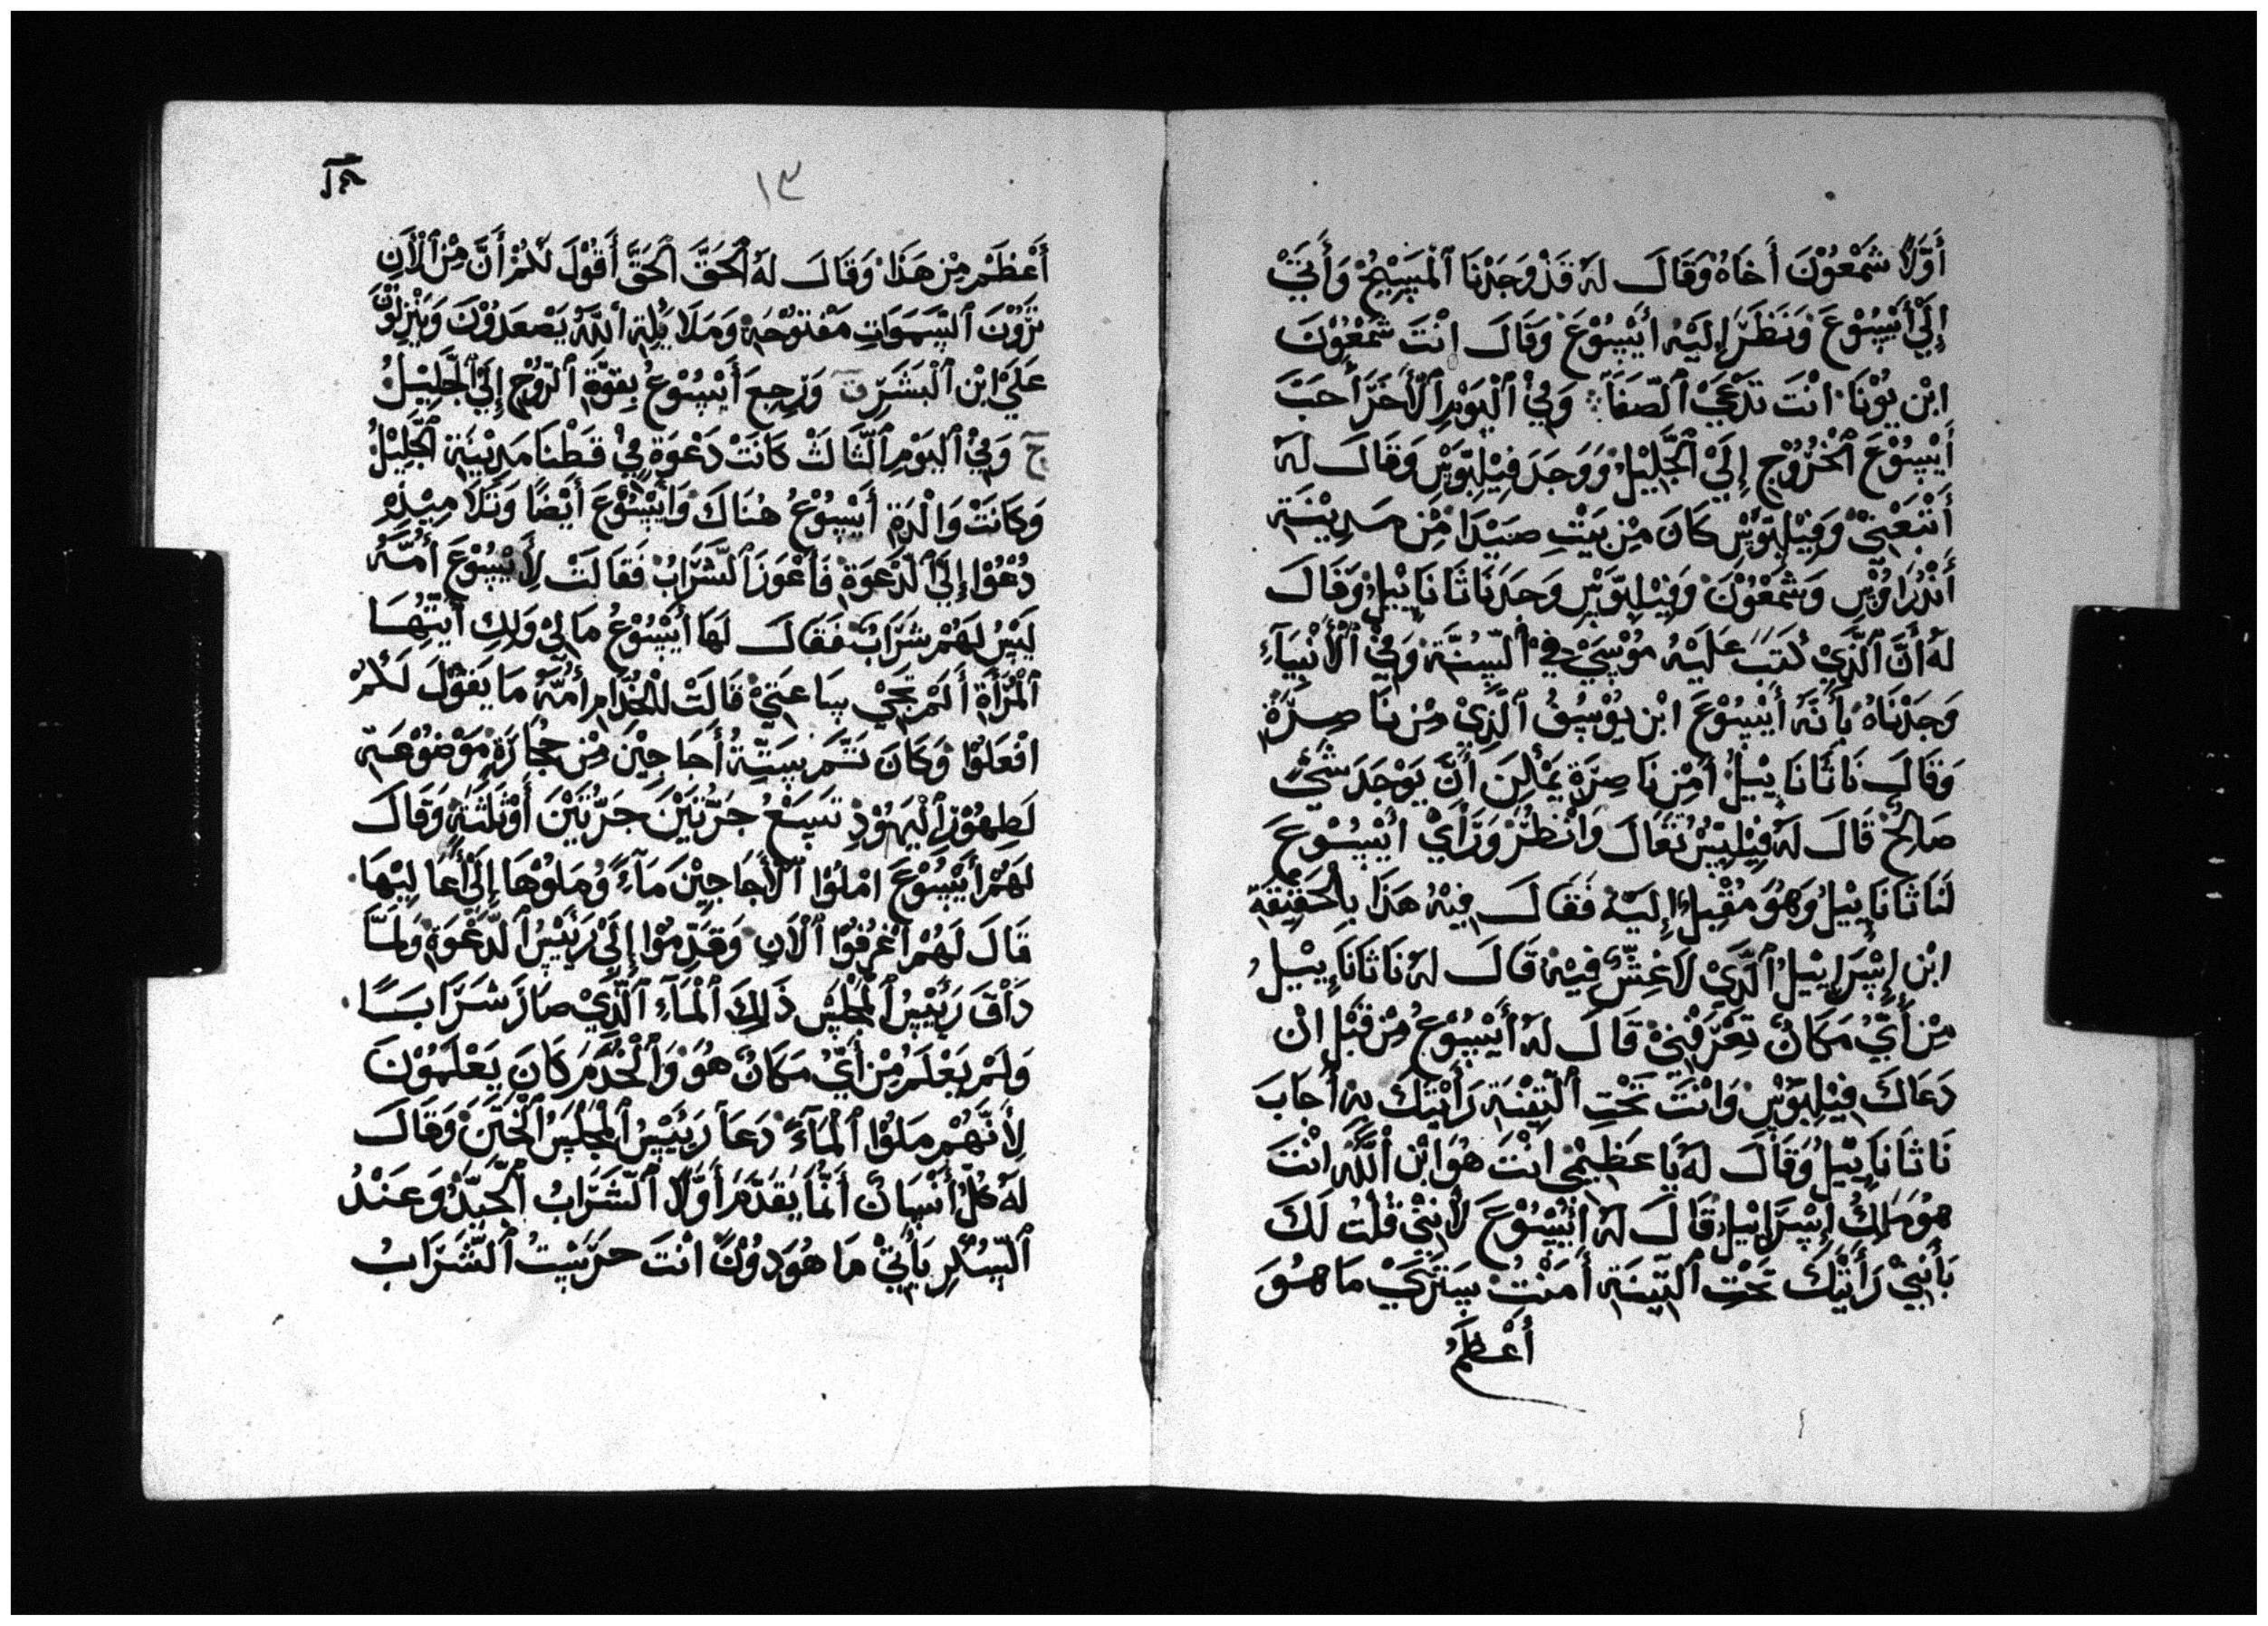 أَوَّلًا شَمْعُوْنَ أَخَاهُ وَقَالَ لَهُ قَدْ وَجَدْنَا ٱلْمَسِيْحُ وَأَتَيْ
إِلَيْ أَيْسُوْعَ وَنَظَرَ إِلَيْهِ أَيْسُوْعَ وَقَالَ اِنْتَ شَمْعُوْنَ
ابْن يُوْنَا اَنْتَ تَدْعَيْ ٱلصَّفَا وَفِيْ ٱلْيَوْمِ ٱلْأَخَرَ أَحَبَّ
أَيْسُوْعَ ٱلْخُرُوْجِ إِلَيْ ٱلْجَلِيْلِ وَوَجَدَ فِيْلِبُّوْسِ وَقَالَ لَهُ
أَتْبَعْنِيْ وَفِيْلِبُّوْسِ كَانَ مِنْ بَيْتِ صَيْدَا مِنْ مَدِيْنَةِ
أَنْدَرَاوُسِ وَشَمْعُوْنَ وَفِيْلِبُّوْسِ وَجَدَ نَاثَانَايِيْلُ وَقَالَ
لَهُ أَنَّ ٱلَّذِيْ كَتَبَ عَلَيْهِ مُوْسَيْ فِيْ ٱلسُّنَّةِ وَفِيْ ٱلْأَنْبِيَآءِ
وَجَدْنَاهُ بِأَنَّهُ أَيْسُوْعَ ابْن يُوْسُفُ ٱلَّذِيْ مِنْ نَاصِرَةِ
وَقَالَ نَاثَانَايِيْلُ أَمِنْ نَاصِرَةِ يُمْكِنَ أَنَّ يُوْجَدَ شَيْءٌ
صَالِحٌ قَالَ لَهُ فِيْلِبُسْ تَعَالَ وَانْظُرْ وَرَأَيْ أَيْسُوْعَ
لَنَاثَانَايِيْلُ وَهُوَ مُقْبِلٌ إِلَيْهِ فَقَالَ فِيْهِ هَذَا بِالْحَقِيْقَةِ
ابْن إِسْرَايِيْلُ ٱلَّذِيْ لَا غِشَّ فِيْهِ قَالَ لَهُ نَاثَانَايِيْلُ
مِنْ أَيِّ مَكَانٌ تَعْرَفْنِيْ قَالَ لَهُ أَيْسُوْعُ مِنْ قَبْلِ انْ
دَعَاكَ فِيْلِبُّوْسِ وَانْتَ تَحْتِ ٱلتِّيْنَةِ رَأَيْتَكَ بِهِ أَجَابَ
نَاثَانَايِيْلُ وَقَالَ لَهُ يَا عَظِيْمِيْ انْتَ هُوَ ابْن ٱللَّهِ انْتَ
هُوَ مَلِكُ إِسْرَايِيْلُ قَالَ لَهُ أَيْسُوْعَ لَأَنِّيْ قُلْتُ لَكَ
بِأَنِّيْ رَأَيْتَكَ تَحْتِ ٱلتِّيْنَةِ أَمَنْتَ سَتَرَيْ مَا هُوَ
أَعْظَمُ
١٣
أَعْظَمْ مِنْ هَذَا وَقَالَ لَهُ ٱلْحَقَّ ٱلْحَقَّ أَقُوْلَ لَكُمْ أَنَّ مِنْ ٱلْأَنِ
تَرَوْنَ ٱلسَّمَوَاتِ مَفْتُوْحَةٍ وَمَلَايِكَةِ ٱللَّهِ يَصْعَدُوْنَ وَيَنْزِلُوْنَ
عَلَيْ ابْن ٱلْبَشَرِ ت وَرَجِعَ أَيْسُوْعُ بِقُوَّةِ ٱلرُّوْحِ إِلَيْ ٱلْجَلِيْلُ
ج وَفِيْ ٱلْيَوْمِ ٱلثَّالَثْ كَانَتْ دَعْوَةٍ فِيْ قَطْنَا مَدِيْنَةِ ٱلْجَلِيْلُ
وَكَانَتْ وَالْدَةِ أَيْسُوْعُ هُنَاكَ وَأَيْسُوْعَ أَيْضًا وَتَلَامِيْذِهِ
دُعُوْا إِلَيْ ٱلدَّعْوَةِ فَأَعْوَزَ ٱلشَّرَابُ فَقَالَتْ لِأَيْسُوْعَ أُمَّهُ
لَيْسُ لَهُمْ شَرَابٌ فَقَالَ لَهَا أَيْسُوْعُ مَا لِيْ وَلَكِ أَيَّتِهَا
ٱلْمَرْأَةِ أَلَمْ تَجِيْ سَاعَتِيْ قَالَتْ لِلْخُدَّامِ أُمَّهُ مَا يَقُوْلَ لَكُمْ
افْعَلُوْا وَكَانَ ثَمَّ سِتَّةُ أَجَاجِيْنَ مِنْ حِجَارَةٍ مَوْضُوْعَةٍ
لَطِهُوْرِ ٱلْيَهُوْدِ تَسِعُ جَرَّتَيْنَ جَرَّتَيْنَ أَوْ ثَلَثَةٍ وَقَالَ
لَهُمْ أَيْسُوْعَ امْلُوْا ٱلْأَجَاجِيْنَ مَآءً وَمَلُوْهَا إِلَيْ أَعَالِيْهَا
قَالَ لَهُمْ اغْرُفُوْا ٱلْأَنِ وَقَدِّمُوْا إِلَيْ رَئِيْسُ ٱلدَّعْوَةِ وَلَمَّا
ذَاْقَ رَئِيْسُ ٱلْمَجْلِسِ ذَلِكَ ٱلْمَآءِ ٱلَّذِيْ صَارَ شَرَابًا
وَلَمْ يَعْلَمْ مِنْ أَيِّ مَكَانٌ هُوَ وَٱلْخُدَّمَ كَانَ يَعْلَمُوْنَ
لِأَنَّهُمْ مَلُوْا ٱلْمَآءَ دَعَا رَئِيْسُ ٱلْمَجْلِسِ ٱلْخَتَنَ وَقَالَ
لَهُ كُلُّ أَنْسَانٌ أَنَّمَا يَقَدِّمُ أَوَّلًا ٱلشَّرَابُ ٱلْجَيِّدُ وَعَنْدُ
ٱلسُّكْرِ يَأْتِيْ مَا هُوَ دُوْنٌ انْتَ خَبَّيْتُ ٱلشَّرَابُ